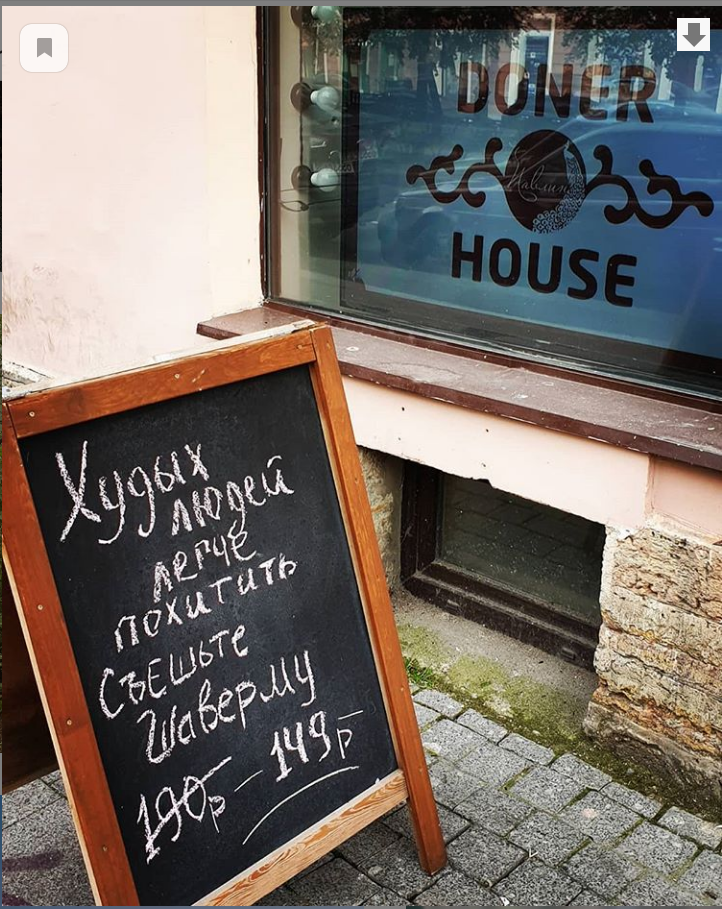 DONER
Павлин
HOUSE
Худых
людей
легче
похитить
Съешьте
Шаверму
190р - 149р